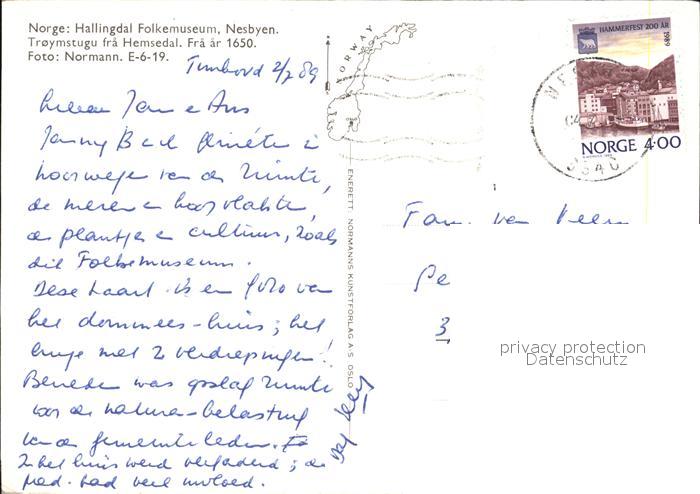 Norge: Hallingdal Folkemuseum, Nesbyen.
Trøymstugu frå Hemsedal. Frå år 1650.
Foto: Normann. E-6-19.
2/7 89
Jan e Ans
Jan
in
Noorwegen van de ruimte,
de meren en hoogvlakte,
de plantjes en cultuur, zoals
dit Folkemuseum.
Deze kaart is een foto van
het dominees-huis; het
enige met 2 verdiepingen!
Beneden was opslag ruimte
voor de natura-belasting
van de gemeenteleden. En
in het huis werd vergaderd; de
pred. had veel invloed.
NORWAY
ENERETT: NORMANNS KUNSTFORLAG A/S OSLO
HAMMERFEST 200 ÅR
1989
NORGE 4.00
Fam. van Veen
3
privacy protection
Datenschutz